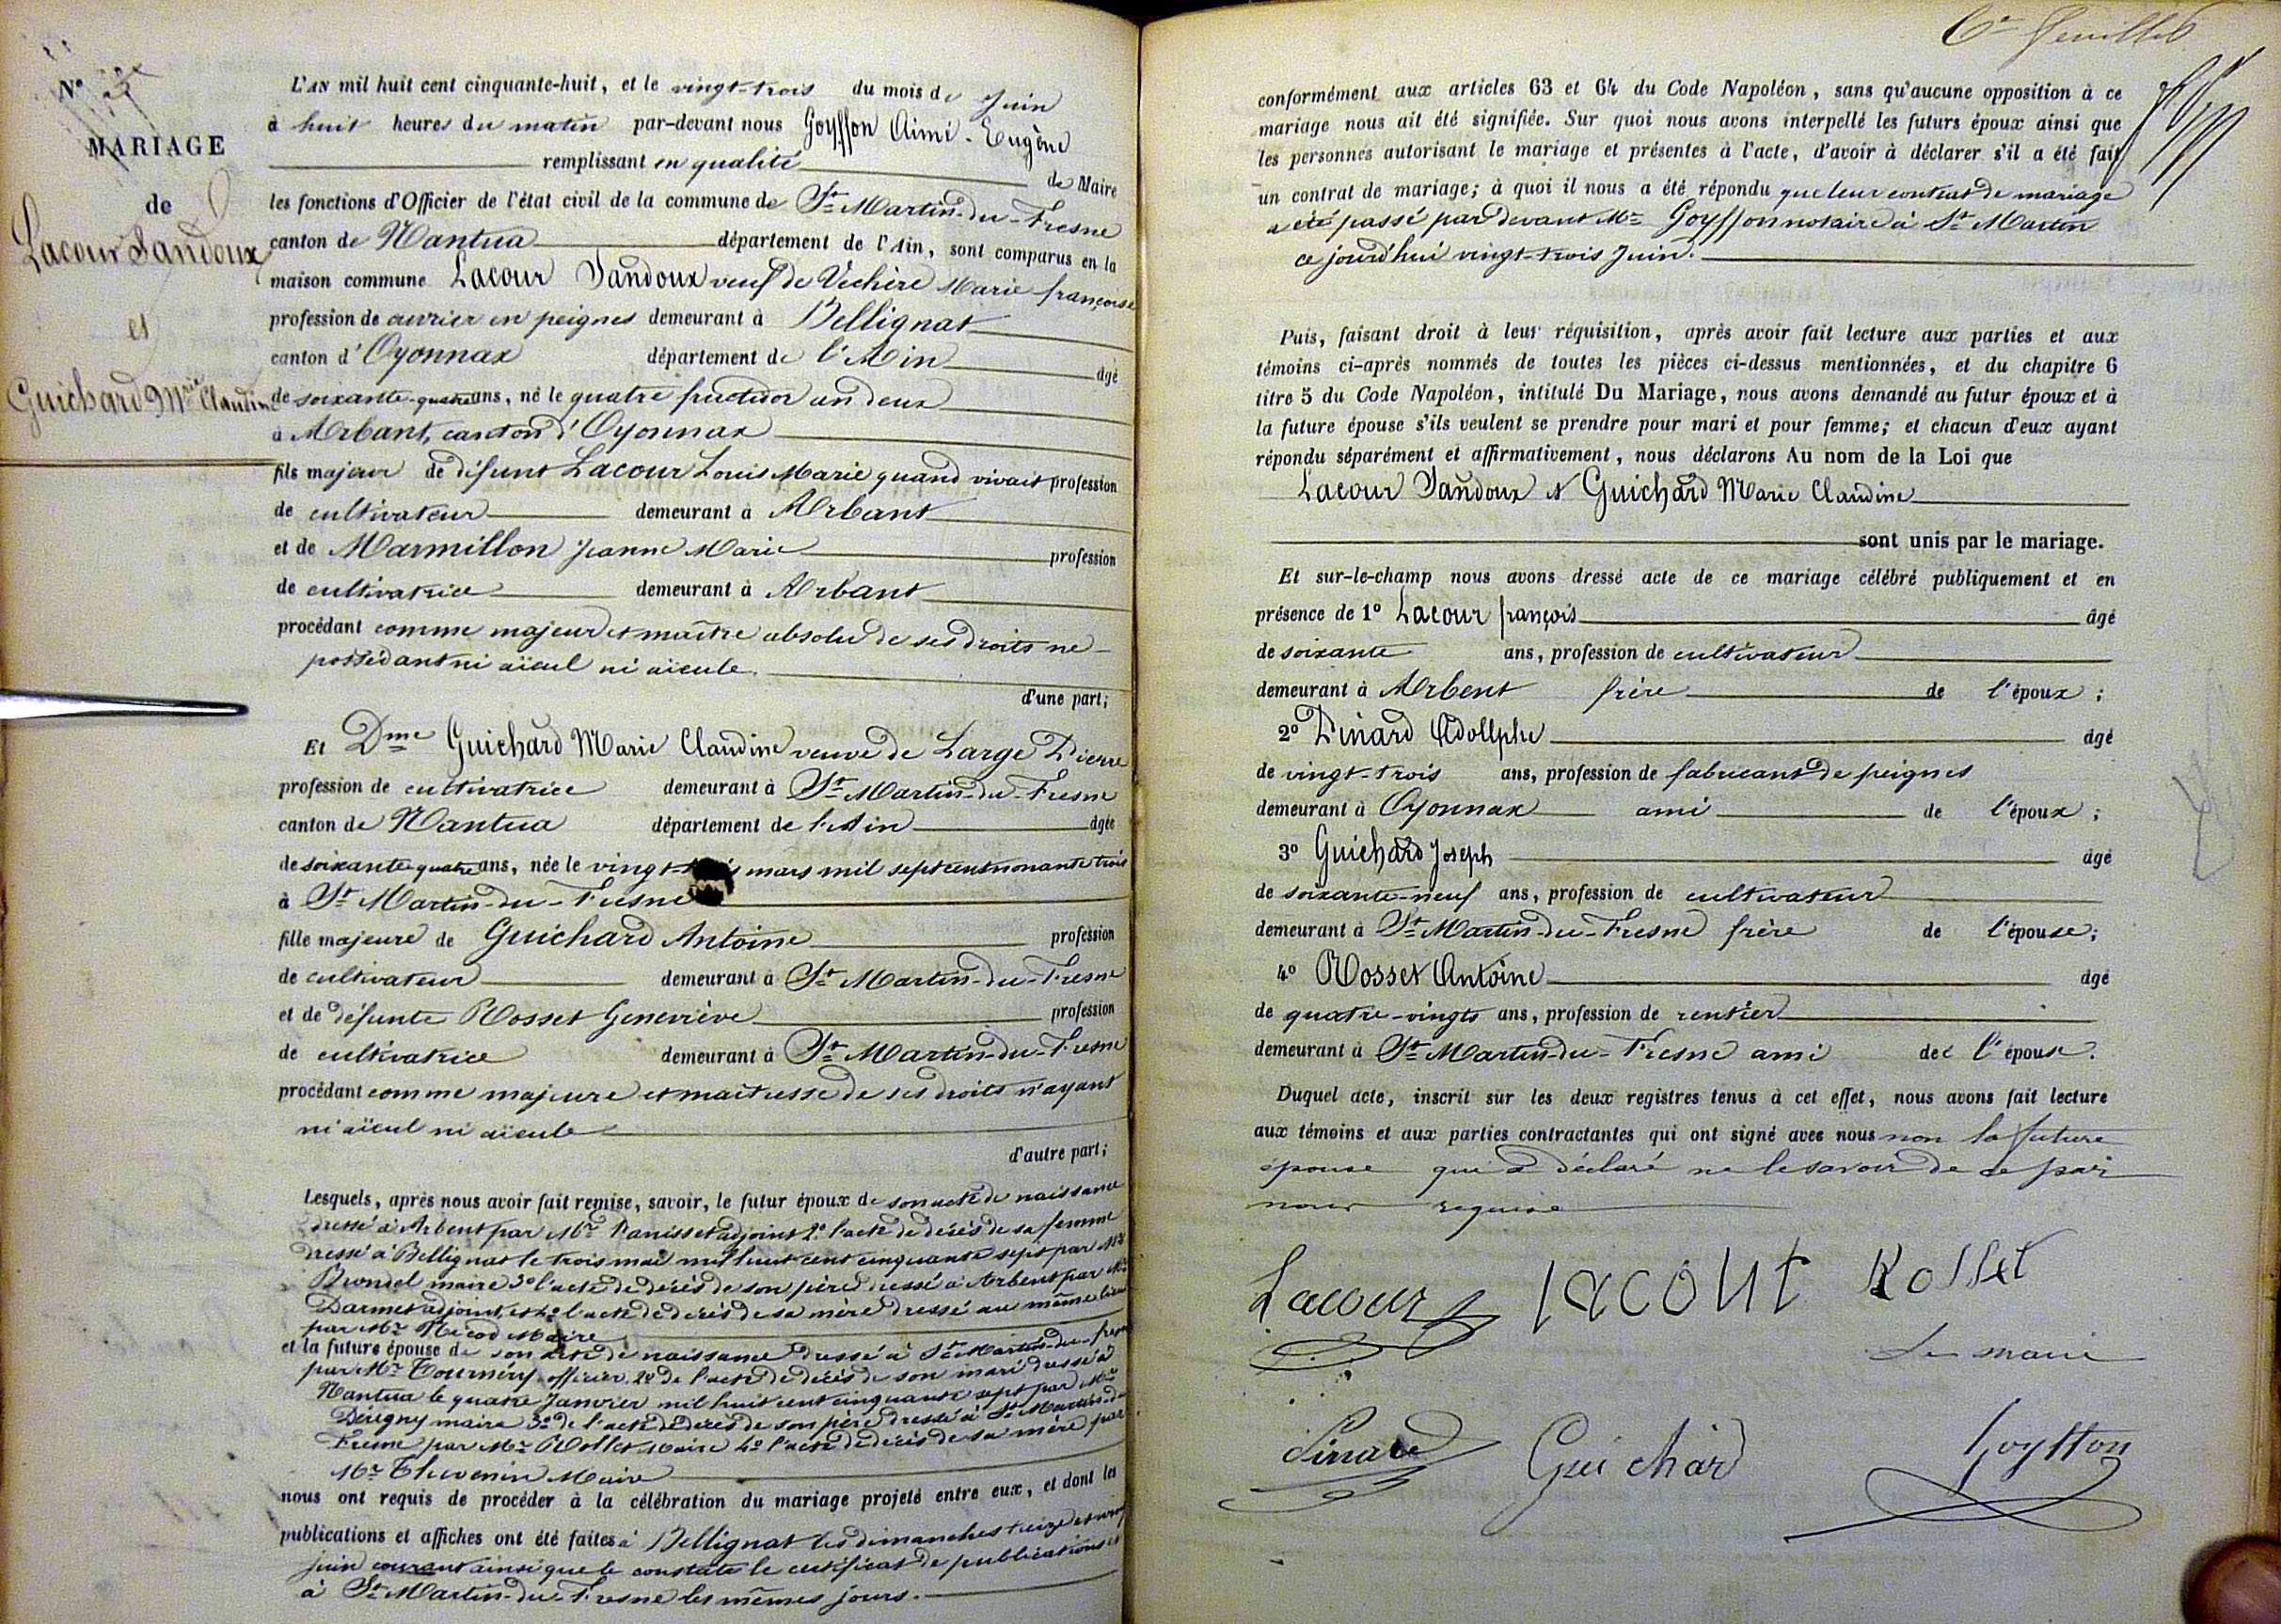 N° 3
MARIAGE
de
Lacour Jandoux
et
Guichard Mrie Claudine
L'AN mil huit cent cinquante-huit, et le vingt-trois du mois de Juin
à huit heures du matin par-devant nous Goyffon Aimé-Eugène
remplissant en qualité de Maire
les fonctions d'Officier de l'état civil de la commune de St Martin-du-Fresne
canton de Nantua département de l'Ain, sont comparus en la
maison commune Lacour Jandoux veuf de Véchère Marie françoise
profession de ouvrier en peignes demeurant à Bellignat
canton d'Oyonnax département de l'Ain âgé
de soixante-quatre ans, né le quatre fructidor an deux
à Arbant, canton d'Oyonnax
fils majeur de défunt Lacour Louis Marie quand vivait profession
de cultivateur demeurant à Arbant
et de Marmillon Jeanne Marie profession
de cultivatrice demeurant à Arbant
procédant comme majeur et maître absolu de ses droits ne
possédant ni aïeul ni aïeule.
d'une part;
Et Dme Guichard Marie Claudine veuve de Large Pierre
profession de cultivatrice demeurant à St Martin-du-Fresne
canton de Nantua département de l'Ain âgée
de soixante quatre ans, née le vingt mars mil sept cent nonante trois
à St Martin-du-Fresne
fille majeure de Guichard Antoine profession
de cultivateur demeurant à St Martin-du-Fresne
et de défunte Rosset Geneviève profession
de cultivatrice demeurant à St Martin-du-Fresne
procédant comme majeure et maîtresse de ses droits n'ayant
ni aïeul ni aïeule
d'autre part;
Lesquels, après nous avoir fait remise, savoir, le futur époux de son acte de naissance
dressé à Arbent par Mr Panisset adjoint 2° l'acte de décès de sa femme
dressé à Bellignat le trois mai mil huit cent cinquante sept par Mr
Blondel maire 3° l'acte de décès de son père dressé à Arbent par Mr
Darmet adjoint, et 4° l'acte de décès de sa mère dressé au même lieu
par Mr Nicod Maire
et la future épouse de son acte de naissance dressé à St Martin-du-fresne
par Mr Tournéry officier, 2° de l'acte de décès de son mari dressé à
Nantua le quatre Janvier mil huit cent cinquante sept par Mr
maire 3° de l'acte de décès de son père dressé à St Martin-du
Fresne par Mr Rollet Maire 4° l'acte de décès de sa mère par
Mr Thevenin Maire
nous ont requis de procéder à la célébration du mariage projeté entre eux, et dont les
publications et affiches ont été faites à Bellignat les dimanches treize et vingt
juin courant ainsi que le constate le certificat de publications et
à St Martin-du-Fresne les mêmes jours.
6e feuillet
conformément aux articles 63 et 64 du Code Napoléon, sans qu'aucune opposition à ce
mariage nous ait été signifiée. Sur quoi nous avons interpellé les futurs époux ainsi que
les personnes autorisant le mariage et présentes à l'acte, d'avoir à déclarer s'il a été fait
un contrat de mariage; à quoi il nous a été répondu que leur contrat de mariage
a été passé par devant Me Goyffon notaire à St Martin
ce jourd'hui vingt-trois Juin.
Puis, faisant droit à leur réquisition, après avoir fait lecture aux parties et aux
témoins ci-après nommés de toutes les pièces ci-dessus mentionnées, et du chapitre 6
titre 5 du Code Napoléon, intitulé Du Mariage, nous avons demandé au futur époux et à
la future épouse s'ils veulent se prendre pour mari et pour femme; et chacun d'eux ayant
répondu séparément et affirmativement, nous déclarons Au nom de la Loi que
Lacour Jandoux et Guichard Marie Claudine
sont unis par le mariage.
Et sur-le-champ nous avons dressé acte de ce mariage célébré publiquement et en
présence de 1° Lacour françois âgé
de soixante ans, profession de cultivateur
demeurant à Arbent frère de l'époux;
2° Pinard Adollphe âgé
de vingt-trois ans, profession de fabricant de peignes
demeurant à Oyonnax ami de l'époux;
3° Guichard Joseph âgé
de soixante-neuf ans, profession de cultivateur
demeurant à St Martin-du-Fresne frère de l'épouse;
4° Rosset Antoine âgé
de quatre-vingts ans, profession de rentier
demeurant à St Martin-du-Fresne ami de l'épouse.
Duquel acte, inscrit sur les deux registres tenus à cet effet, nous avons fait lecture
aux témoins et aux parties contractantes qui ont signé avec nous non la future
épouse qui a déclaré ne le savoir de ce par
nous requise
Lacour lacour Rosset
Le maire
Pinard Guichard Goyffon